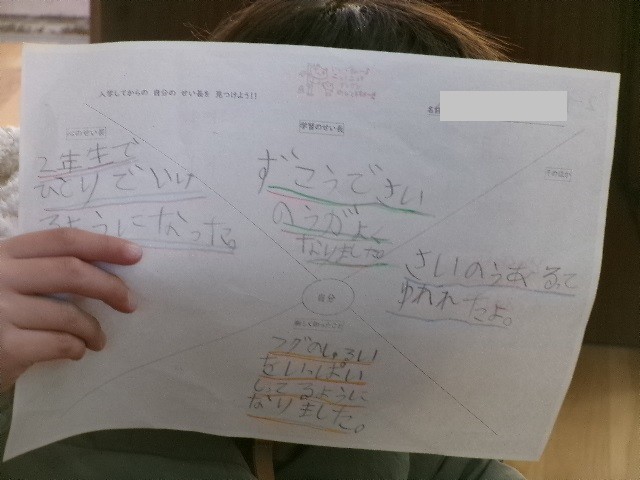 入学してからの 自分の せい長を 見つけよう!!
名前
心のせい長
2年生で
ひとりでいけ
るようになった。
学習のせい長
ずこうでさい
のうがよく
なりました
そのほか
さいのうあるって
ゆわれたよ。
自分
フグのしゅるい
をいっぱい
しってるように
なりました。